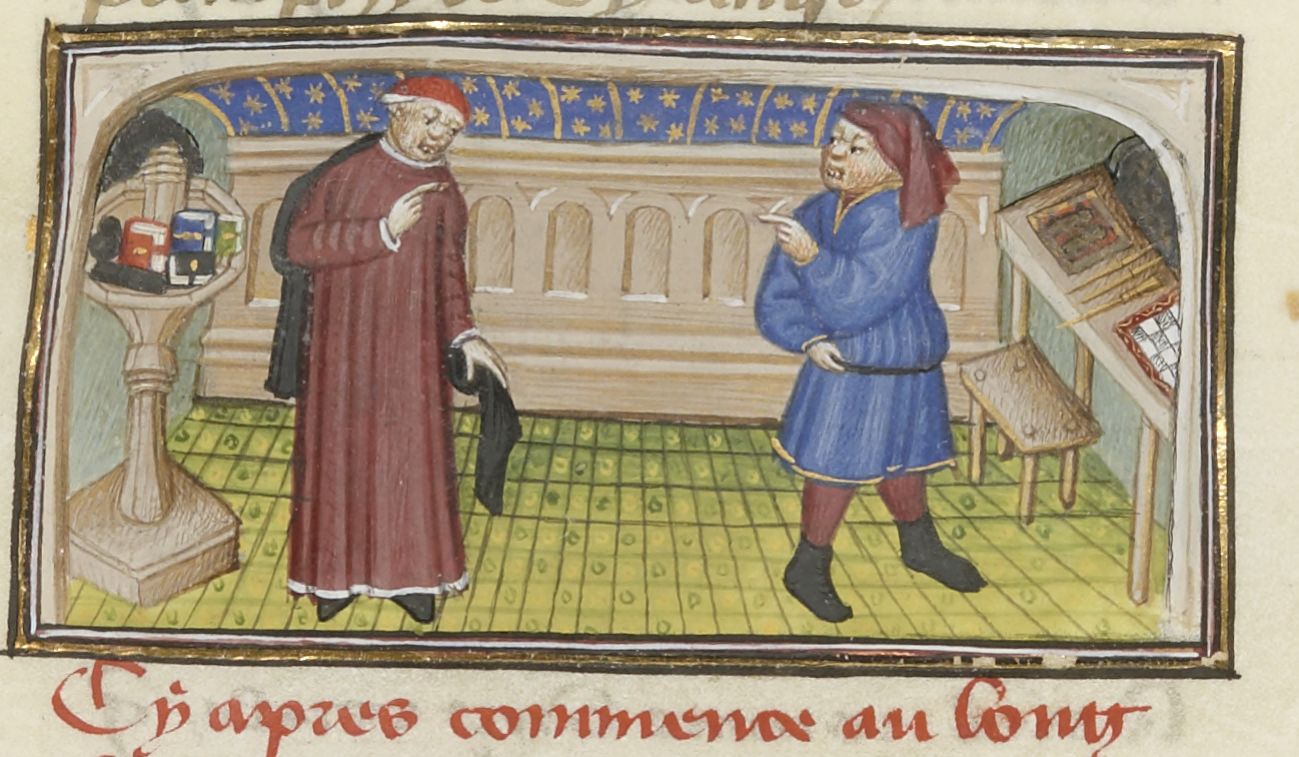 Cy apres commence au long